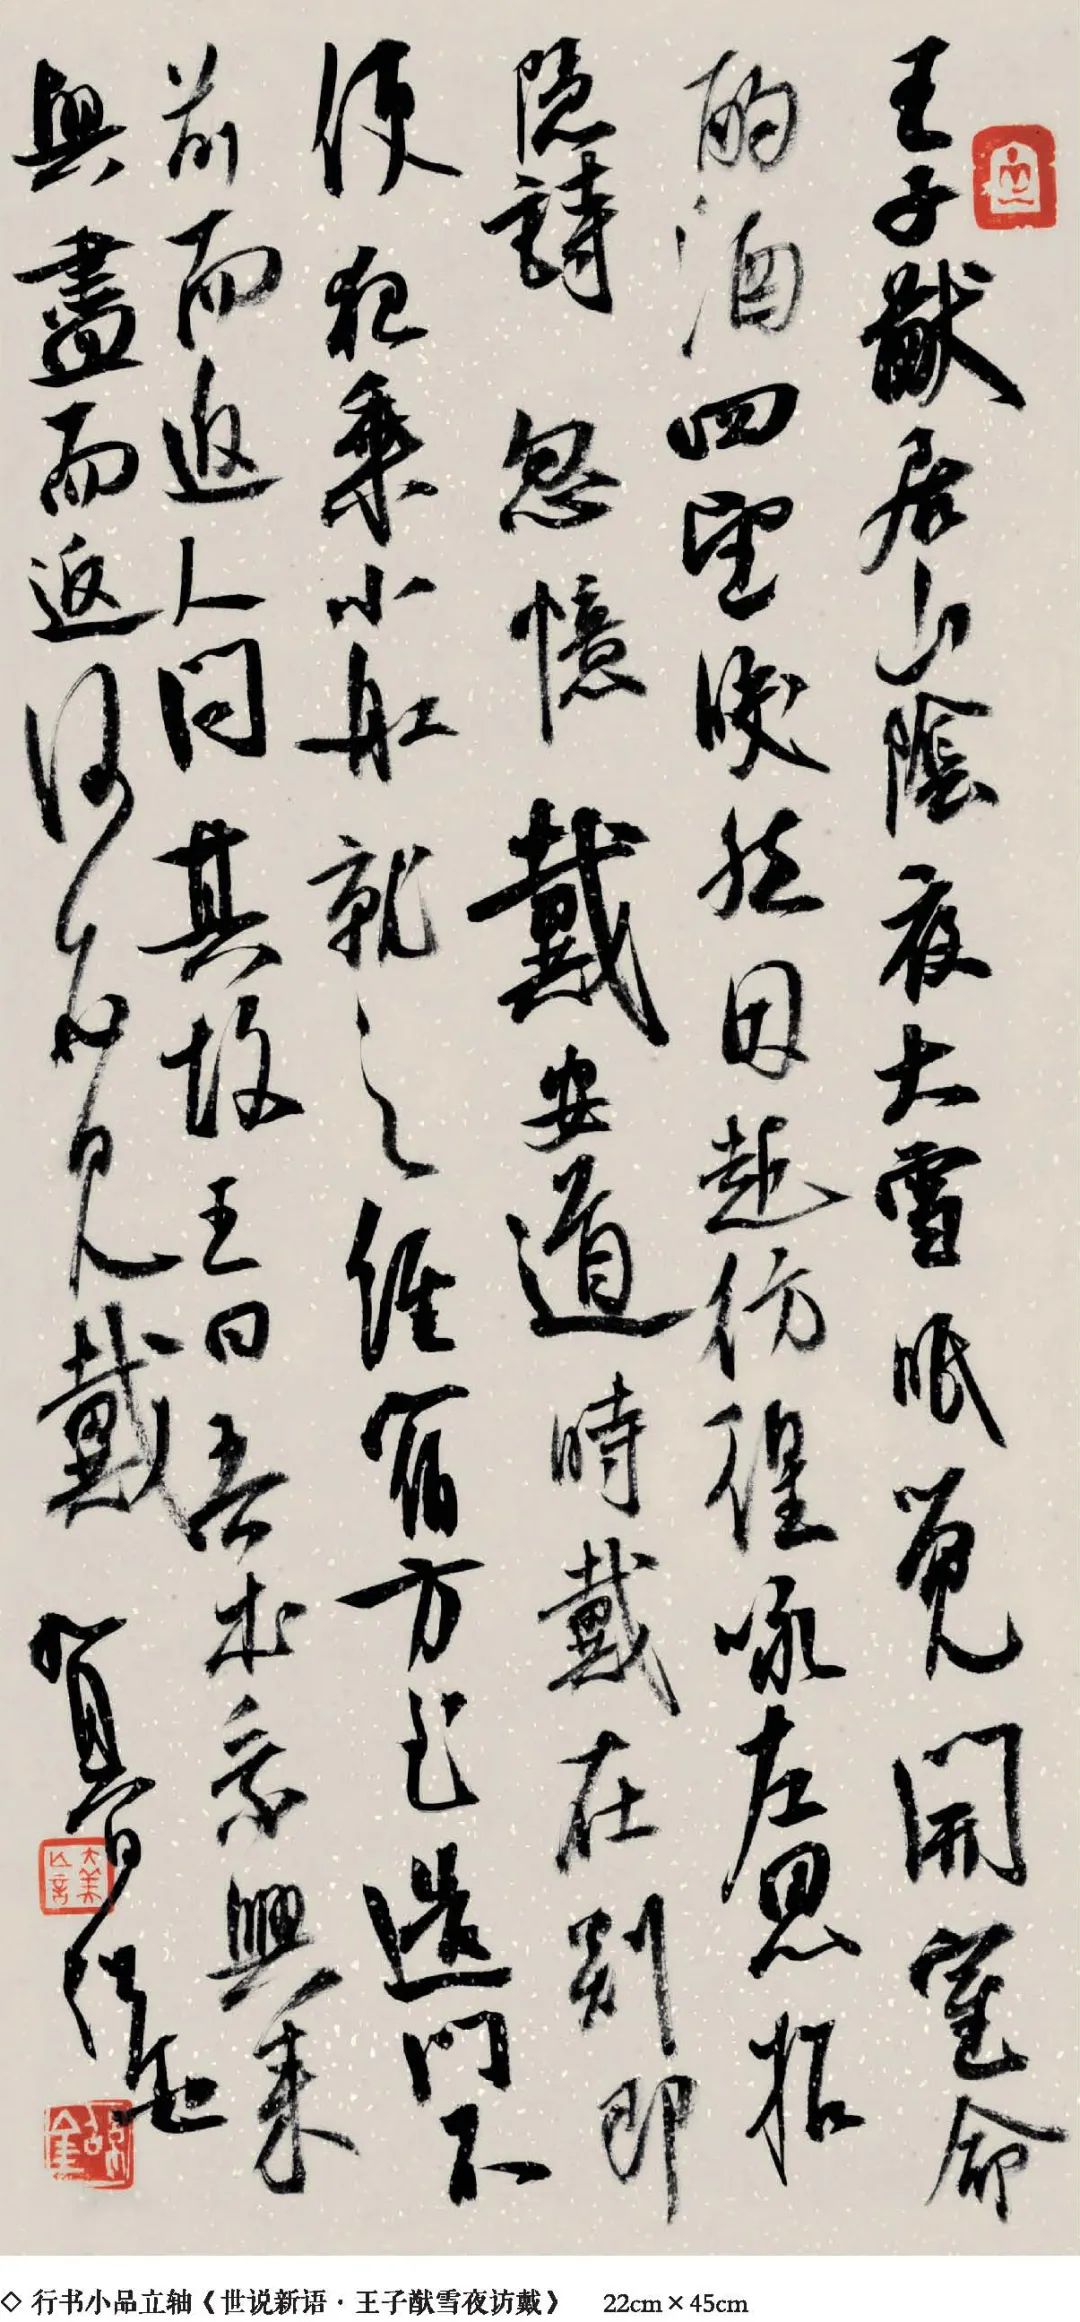 王子猷居山陰夜大雪眠覺開室命
酌酒四望皎然因起彷徨咏左思招
隐詩忽憶戴安道時戴在剡即
便夜乘小舡就之經宿方至造門不
前而返人問其故王曰吾本乘興来
興盡而返何必見戴
◇ 行书小品立轴《世说新语·王子猷雪夜访戴》 22cm×45cm